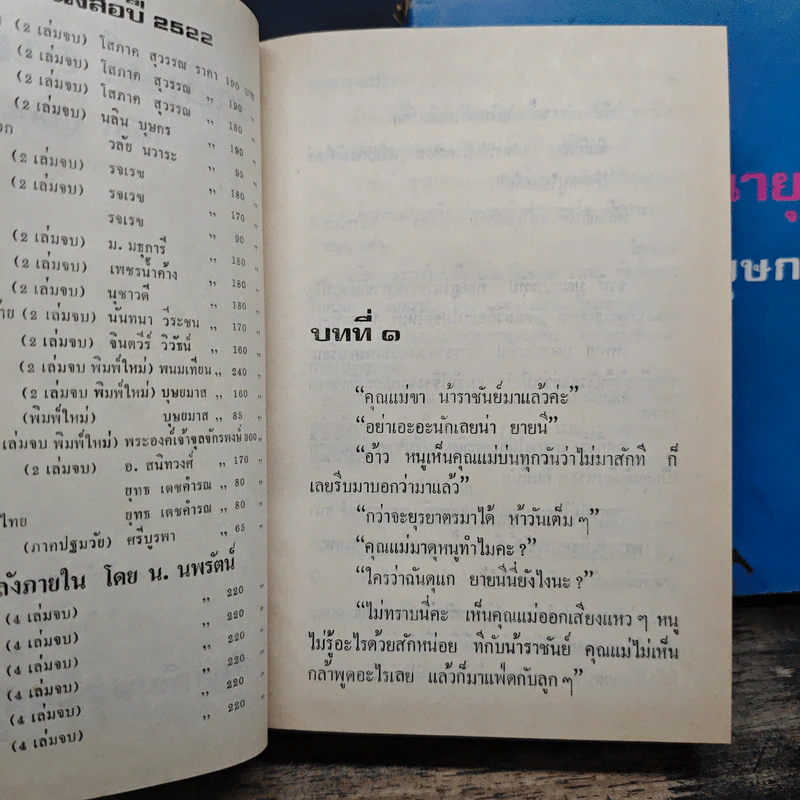 2522
(2 เล่มจบ) โสภาค สุวรรณ ราคา 190 บาท
(2 เล่มจบ) โสภาค สุวรรณ ,, 190 ,,
(2 เล่มจบ) โสภาค สุวรรณ ,, 180 ,,
(2 เล่มจบ) นลิน บุษกร ,, 190 ,,
วลัย นวาระ ,, 95 ,,
(2 เล่มจบ) รจเรข ,, 180 ,,
(2 เล่มจบ) รจเรข ,, 170 ,,
รจเรข ,, 90 ,,
(2 เล่มจบ) ม. มธุการี ,, 180 ,,
(2 เล่มจบ) เพชรน้ำค้าง ,, 180 ,,
(2 เล่มจบ) นุชาวดี ,, 180 ,,
(2 เล่มจบ) นันทนา วีระชน ,, 170 ,,
(2 เล่มจบ) จินตวีร์ วิวัธน์ ,, 160 ,,
(2 เล่มจบ พิมพ์ใหม่) พนมเทียน ,, 240 ,,
(2 เล่มจบ พิมพ์ใหม่) บุษยมาส ,, 160 ,,
(พิมพ์ใหม่) บุษยมาส ,, 85 ,,
เล่มจบ พิมพ์ใหม่) พระองค์เจ้าจุลจักรพงษ์ 300 ,,
(2 เล่มจบ) อ. สนิทวงศ์ ,, 170 ,,
ยุทธ เดชคำรณ ,, 80 ,,
ไทย ยุทธ เดชคำรณ ,, 80 ,,
(ภาคปฐมวัย) ศรีบูรพา ,, 65 ,,
ลังภายใน โดย น. นพรัตน์
(4 เล่มจบ) ,, 220 ,,
(4 เล่มจบ) ,, 220 ,,
(4 เล่มจบ) ,, 220 ,,
(4 เล่มจบ) ,, 220 ,,
(4 เล่มจบ) ,, 220 ,,
(4 เล่มจบ)
บทที่ ๑
“คุณแม่ขา น้าราชันย์มาแล้วค่ะ”
“อย่าเอะอะนักเลยน่า ยายนี”
“อ้าว หนูเห็นคุณแม่บ่นทุกวันว่าไม่มาสักที ก็
เลยรีบมาบอกว่ามาแล้ว”
“กว่าจะยุรยาตรมาได้ ห้าวันเต็ม ๆ”
“คุณแม่มาดุหนูทำไมคะ ?”
“ใครว่าฉันดุแก ยายนีนี่ยังไงนะ ?”
“ไม่ทราบนี่คะ เห็นคุณแม่ออกเสียงแหว ๆ หนู
ไม่รู้อะไรด้วยสักหน่อย ทีกับน้าราชันย์ คุณแม่ไม่เห็น
กล้าพูดอะไรเลย แล้วก็มาแฟ่ดกับลูก ๆ”